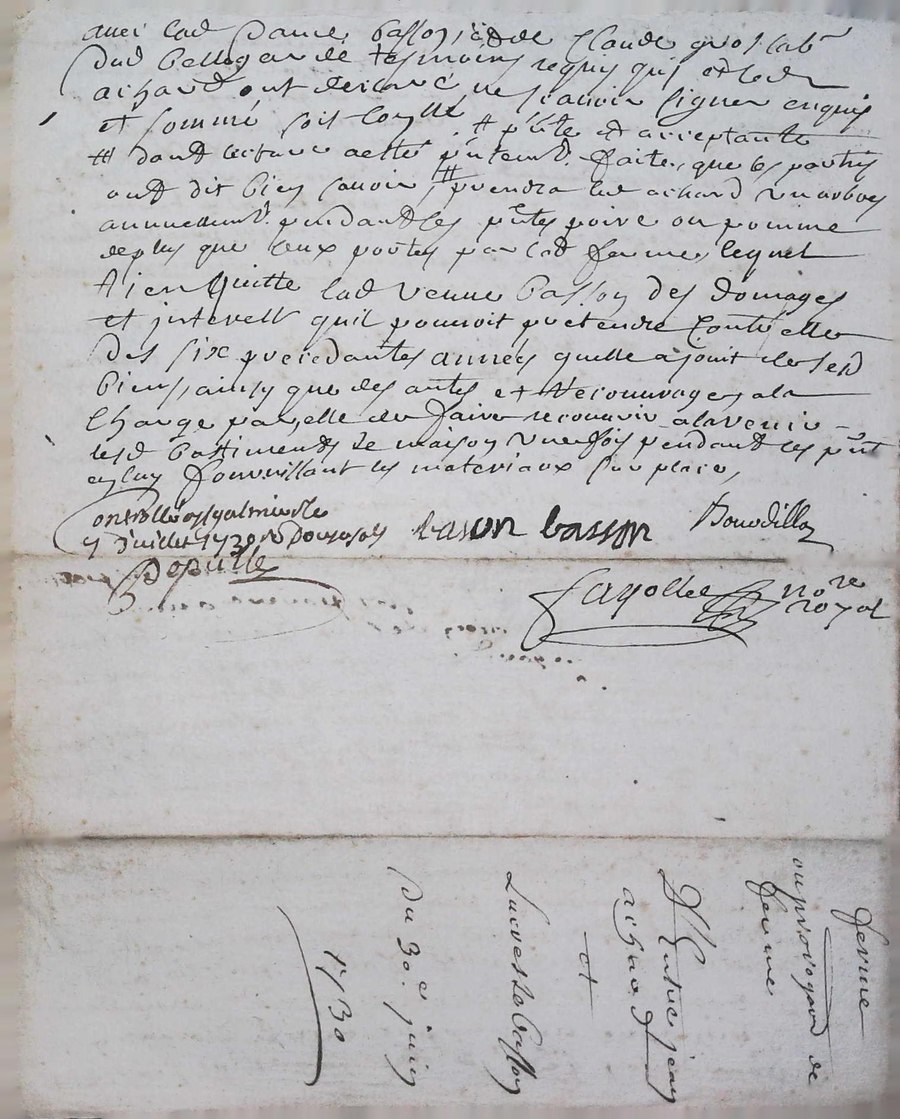 avec lad dame basson et de Claude gros lab^r
dud bellegarde tesmoins requis qui et led
achard ont declaré ne scavoir signer enquis
et sommé soit # p^nte et acceptante
# dont lecture actes faite, que les parties
ont dit bien scavoir, # prendra led achard
annuellement pendant les p^ntes poire ou pomme
de plus que ceux portés par lad ferme, lequel
A quitte lad veuve basson des domages
et interest quil pouvoit pretendre contre elle
des six precedantes années quelle a jouit desd
biens, ainsy que des et recouvrages a la
charge par elle de faire recouvrir a lavenir
lesd battiments de maison une fois pendant les p^nt
en luy fournissant les materiaux sur place,
Controllé a s^t galmier le
juillet 1730
Depuille
basson basson
Bourdillon
fayolle no^re
royal
ferme
ou prorogaon de
ferme
Entre jean
achard
et
basson
Du 30^e juin
1730